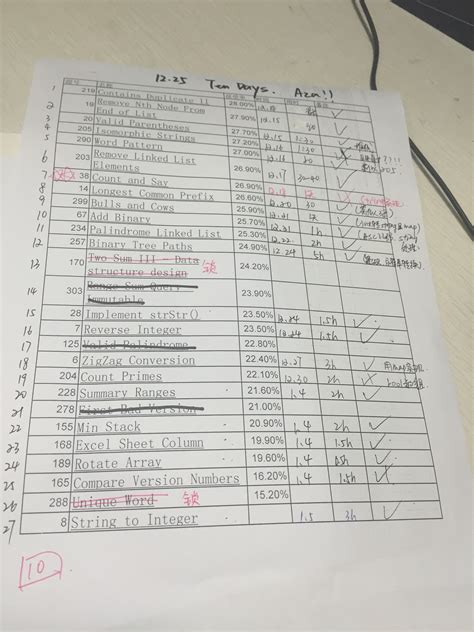 12.25 Ten Days. Aza!!
题号 名称
1 219 Contains Duplicate II 28.00%
2 19 Remove Nth Node From End of List 27.90% 12.15
3 20 Valid Parentheses 27.70% 12.15
4 205 Isomorphic Strings 27.20% 12.15 1.30
5 290 Word Pattern 27.20% 12.16 1.30
6 203 Remove Linked List Elements 26.90% 12.16 30
7 38 Count and Say 26.90% 12.17 30-40
8 14 Longest Common Prefix 26.60%
9 299 Bulls and Cows 25.90% 12.20 30
10 67 Add Binary 25.70% 12.21
11 234 Palindrome Linked List 25.30% 12.21 1h
12 257 Binary Tree Paths 24.90% 12.22 2h
13 170 Two Sum III - Data structure design 锁 24.20% 12.24 5h
14 303 Range Sum Query Immutable 23.90%
15 28 Implement strStr() 23.50% 12.24 1.5h
16 7 Reverse Integer 23.50% 12.24 1.5h
17 125 Valid Palindrome 22.80%
18 6 ZigZag Conversion 22.40% 12.27 3h
19 204 Count Primes 22.10% 12.30 2h
20 228 Summary Ranges 21.60% 1.4 2h
21 278 First Bad Version 21.00%
22 155 Min Stack 20.90% 1.4 2h
23 168 Excel Sheet Column 19.90% 1.4 1.5h
24 189 Rotate Array 19.60% 1.4
25 165 Compare Version Numbers 16.20% 1.4 1.5h
26 288 Unique Word 锁 15.20%
27 8 String to Integer 1.5 3h
10